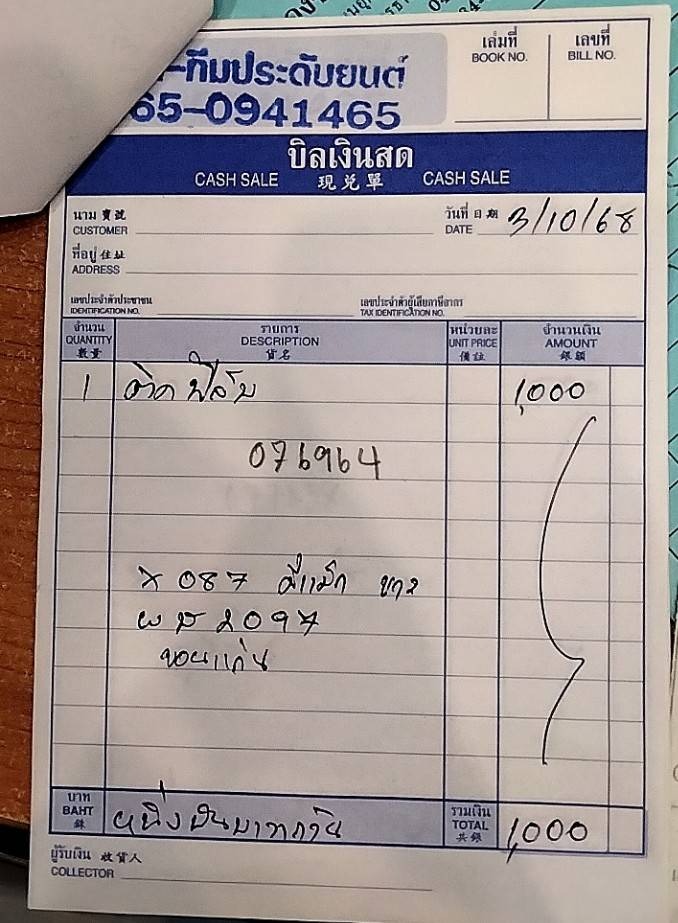 -ทีมประดับยนต์
65-0941465
เล่มที่ เลขที่
BOOK NO. BILL NO.
บิลเงินสด
CASH SALE 現兌單 CASH SALE
นาม 寶號 วันที่ 日期 3/10/68
CUSTOMER DATE
ที่อยู่ 住址
ADDRESS
เลขประจำตัวประชาชน เลขประจำตัวผู้เสียภาษีอากร
IDENTIFICATION NO. TAX IDENTIFICATION NO.
จำนวน รายการ หน่วยละ จำนวนเงิน
QUANTITY DESCRIPTION UNIT PRICE AMOUNT
數量 貨名 備註 銀額
1 ติดฟิล์ม 1,000
076964
X 087 ดีแม็ก ขาว
ผม 2097
ขอนแก่น
บาท หนึ่งพันบาทถ้วน รวมเงิน 1,000
BAHT TOTAL
銖 共銀
ผู้รับเงิน 收貨人
COLLECTOR